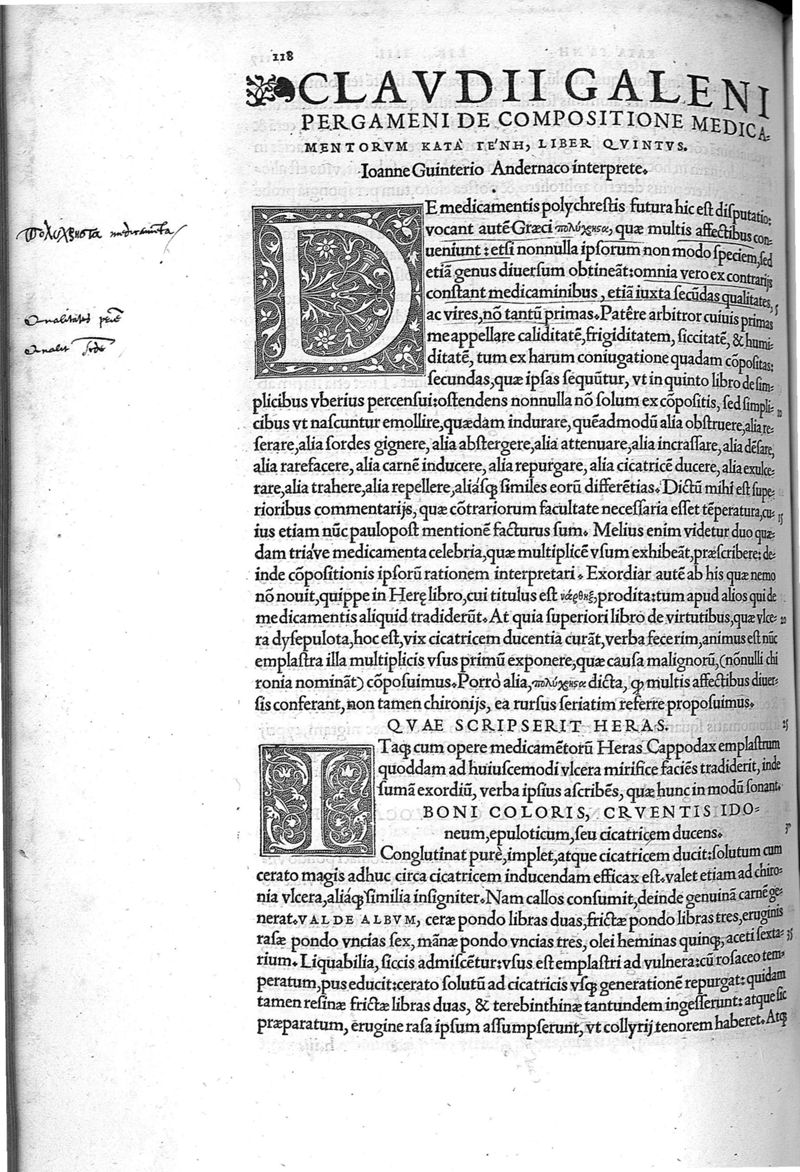 118
CLAVDII GALENI
PERGAMENI DE COMPOSITIONE MEDICA-
MENTORVM ΚΑΤΑ ΓΕ΄ΝΗ, LIBER QVINTVS.
Ioanne Guinterio Andernaco interprete.
DE medicamentis polychrestis futura hic est disputatio:
vocant autẽ Græci πολύχρηστα, quæ multis affectibus con-
ueniunt: etsi nonnulla ipsorum non modo speciem, sed
etiã genus diuersum obtineãt: omnia vero ex contrarijs
constant medicaminibus, etiã iuxta secũdas qualitates, 5
ac vires, nõ tantũ primas. Patêre arbitror cuiuis primas
me appellare caliditatẽ, frigiditatem, siccitatẽ, & humi-
ditatẽ, tum ex harum coniugatione quadam cõpositas:
secundas, quæ ipsas sequũtur, vt in quinto libro de sim-
plicibus vberius percensui: ostendens nonnulla nõ solum ex cõpositis, sed simpli- 10
cibus vt nascuntur emollire, quædam indurare, quẽadmodũ alia obstruere, alia re-
serare, alia sordes gignere, alia abstergere, alia attenuare, alia incrassare, alia dẽsare,
alia rarefacere, alia carnẽ inducere, alia repurgare, alia cicatricẽ ducere, alia exulce-
rare, alia trahere, alia repellere, aliásq; similes eorũ differẽtias. Dictũ mihi est supe-
rioribus commentarijs, quæ cõtrariorum facultate necessaria esset tẽperatura, cu- 15
ius etiam nũc paulopost mentionẽ facturus sum. Melius enim videtur duo quæ-
dam tria've medicamenta celebria, quæ multiplicẽ vsum exhibeãt, præscribere: de-
inde cõpositionis ipsorũ rationem interpretari. Exordiar autẽ ab his quæ nemo
nõ nouit, quippe in Herę libro, cui titulus est νάρθηξ, prodita: tum apud alios qui de
medicamentis aliquid tradiderũt. At quia superiori libro de virtutibus, quæ vlce- 20
ra dysepulota, hoc est, vix cicatricem ducentia curãt, verba fecerim, animus est nũc
emplastra illa multiplicis vsus primũ exponere, quæ causa malignorũ, (nõnulli chi
ronia nominãt) cõposuimus. Porrò alia, πολύχρηστα dicta, q̃ multis affectibus diuer-
sis conferant, non tamen chironijs, ea rursus seriatim referre proposuimus.
QVAE SCRIPSERIT HERAS. 25
ITaq; cum opere medicamẽtorũ Heras Cappodax emplastrum
quoddam ad huiuscemodi vlcera mirifice faciẽs tradiderit, inde
sumã exordiũ, verba ipsius ascribẽs, quæ hunc in modũ sonant.
BONI COLORIS, CRVENTIS IDO-
neum, epuloticum, seu cicatricem ducens. 30
Conglutinat purè, implet, atque cicatricem ducit: solutum cum
cerato magis adhuc circa cicatricem inducendam efficax est. valet etiam ad chiro-
nía vlcera, aliáq; similia insigniter. Nam callos consumit, deinde genuinã carnẽ ge-
nerat. VALDE ALBVM, ceræ pondo libras duas, frictæ pondo libras tres, eruginis
rasæ pondo vncias sex, mãnæ pondo vncias tres, olei heminas quinq;, aceti sexta- 35
rium. Liquabilia, siccis admiscẽtur: vsus est emplastri ad vulnera: cũ rosaceo tem-
peratum, pus educit: cerato solutũ ad cicatricis vsq; generationẽ repurgat: quidam
tamen resinæ frictæ libras duas, & terebinthinæ tantundem ingesserunt: atque sic
præparatum, erugine rasa ipsum assumpserunt, vt collyrij tenorem haberet. Atq;
Πολυχρηστα medicamẽta
Qualitates
Qualit